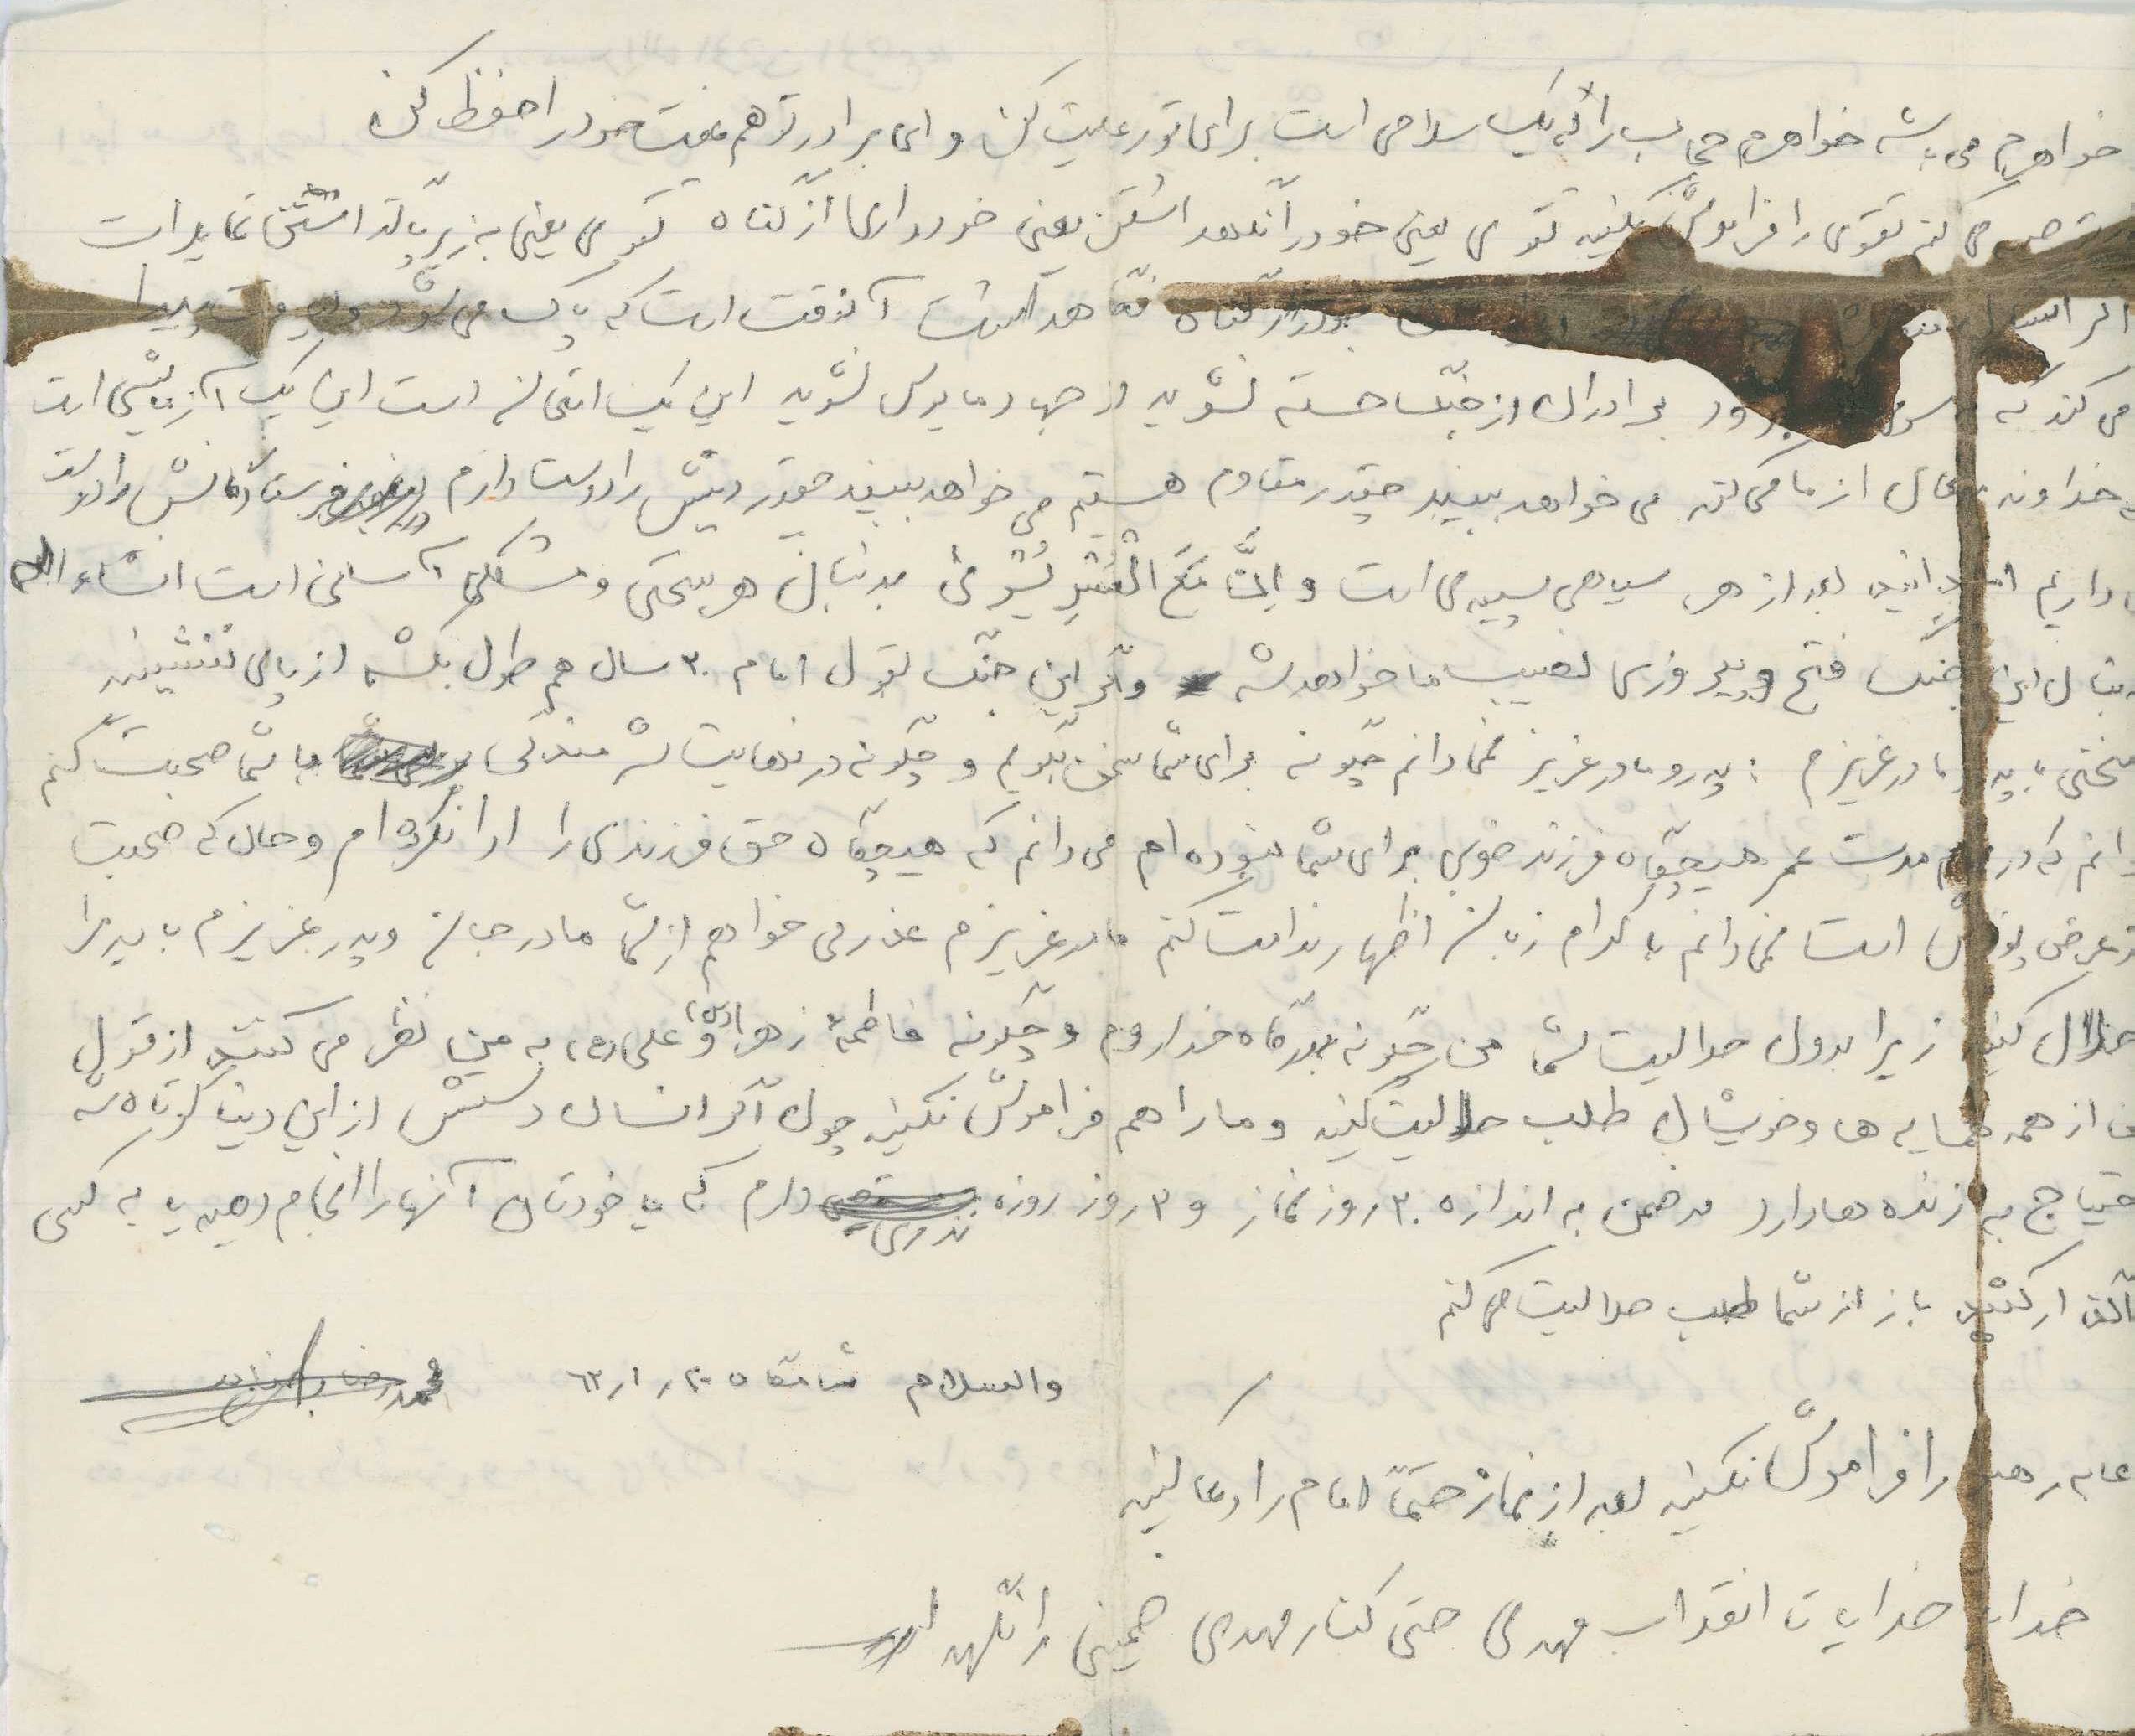 خواهرم می باشد خواهرم حجاب را که یک سلاحی است برای تو رعایت کن و ای برادر تو هم عفت خود را حفظ کن
توصیه می کنم تقوی را فراموش نکنید تقوی یعنی خود را نگهداشتن یعنی خودداری از گناه تقوی یعنی به زیر پا گذاشتن تمایلات
اگر انسان گناه نخواهد داشت آنوقت است که پاک می شود و لیاقت پیدا
می کند که بسوی برود برادران از جنگ خسته نشوید از جهاد مایوس نشوید این یک امتحان است این یک آزمایشی است
خداوند متعال از ما می کند می خواهد ببیند چقدر مقاوم هستیم می خواهد ببیند چقدر دینش را دوست داریم فرستادگانش را دوست
داریم بعد از هر سیاهی سپیدی است و اِنَّ مَعَ الْعُسْرِ یُسْریٰ بدنبال هر سختی و مشکلی آسانی است انشاء الله
بدنبال این جنگ فتح و پیروزی نصیب ما خواهد شد و اگر این جنگ بقول امام ۲۰ سال هم طول بکشد از پای ننشینید
سخنی با پدر و مادر عزیزم : پدر و مادر عزیز نمی دانم چگونه برای شما سخن بگویم و چگونه در نهایت شرمندگی با شما صحبت کنم
دانم که در مدت عمر هیچگاه فرزند خوبی برای شما نبوده ام می دانم که هیچگاه حق فرزندی را ادا نکرده ام و حال که صحبت
از عرض پوزش است نمی دانم با کدام زبان اظهار ندامت کنم مادر عزیزم عذر می خواهم از شما مادر جان و پدر عزیزم باید مرا
حلال کنید زیرا بدون حلالیت شما من چگونه بدرگاه خدا روم و چگونه فاطمهٔ زهرا (س) و علی (ع) به من نظر می کنند از قول
من از همه همسایه ها و خویشان طلب حلالیت کنید و ما را هم فراموش نکنید چون اگر انسان دستش از این دنیا کوتاه شد
احتیاج به زنده ها دارد در ضمن به اندازه ۳۰ روز نماز و ۳ روز روزه نذری دارم که یا خودتان آنها را انجام دهید یا به کسی
واگذار کنید باز از شما طلب حلالیت می کنم
والسلام شامگاه ۶۲٫۱٫۲۰ محمدرضا
دعا به رهبر را فراموش نکنید بعد از نماز حتماً امام را دعا کنید
خدایا خدایا تا انقلاب مهدی حتی کنار مهدی خمینی را نگهدار